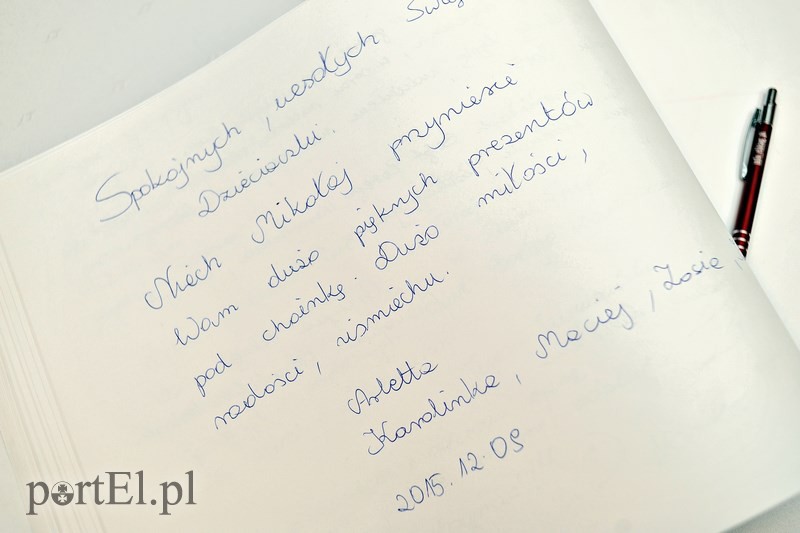 Spokojnych, wesołych Świąt
Dzieciaczki.
Niech Mikołaj przyniesie
Wam dużo pięknych prezentów
pod choinkę. Dużo miłości,
radości, uśmiechu.
Arletta
Karolinka, Maciej, Zosia,
2015.12.09
portEl.pl